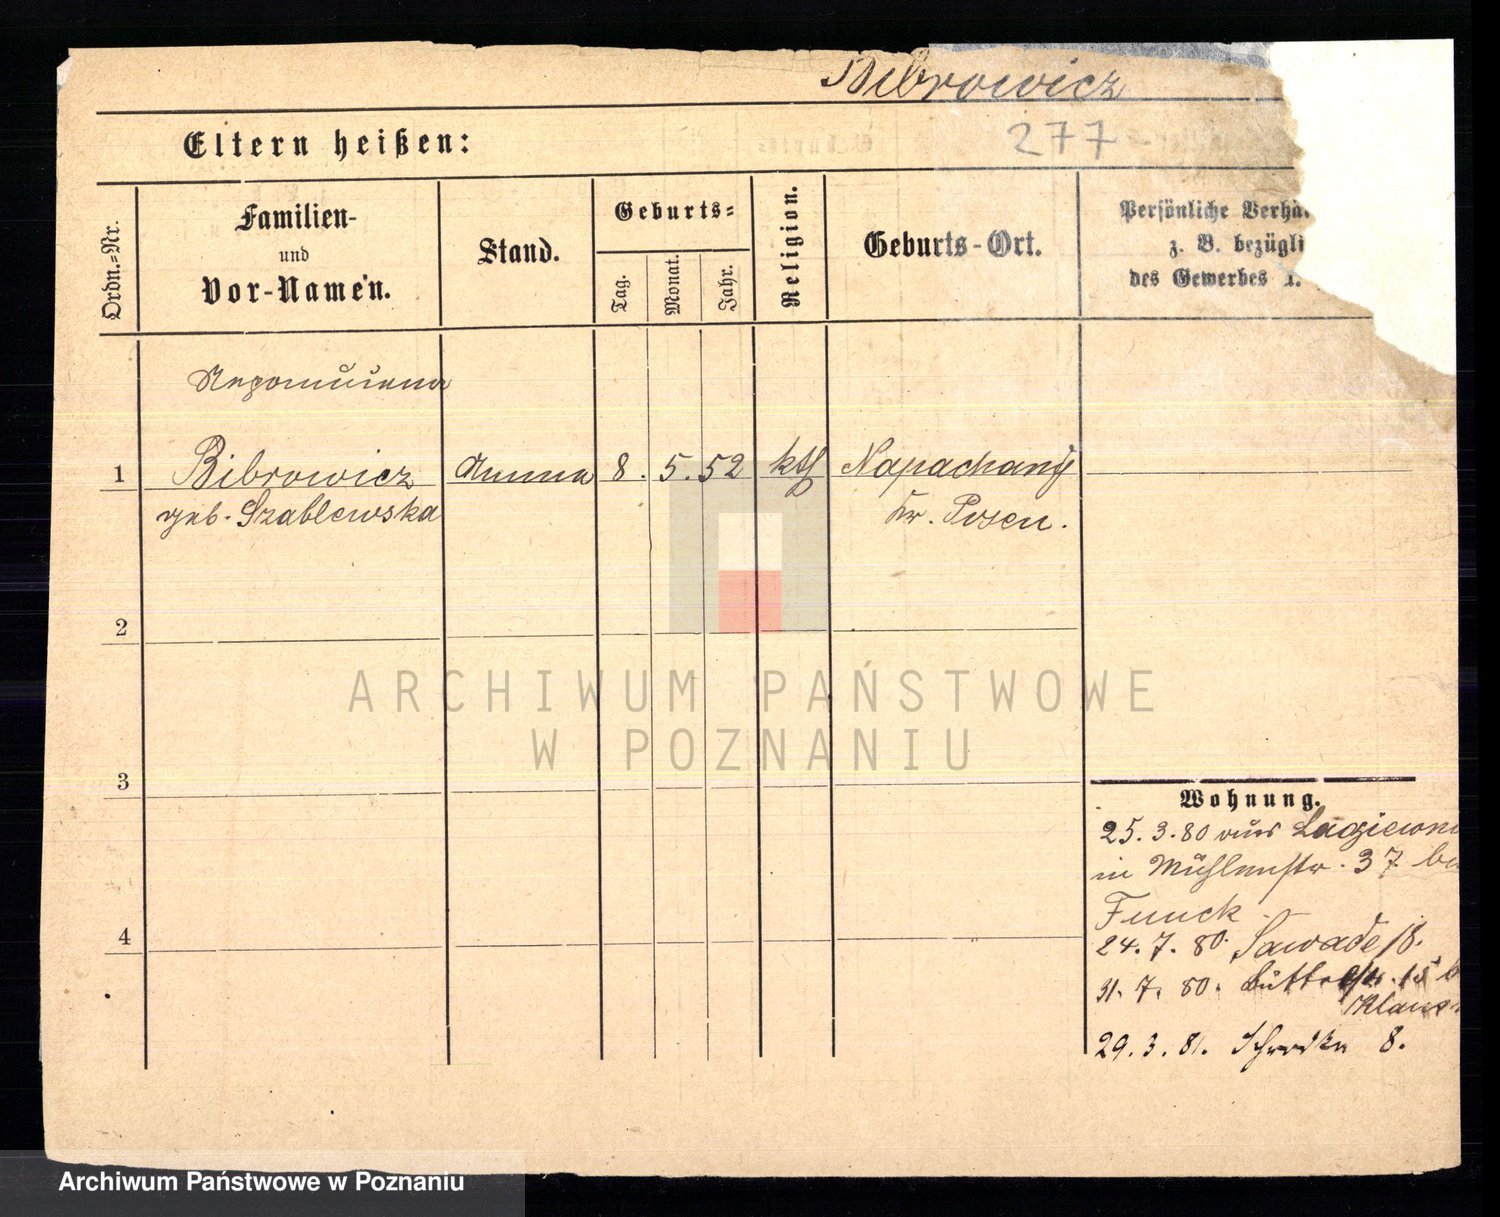 Bibrowicz
Eltern heißen:
277
Ordn.=Nr.
Familien-
und
Vor-Namen.
Stand.
Geburts=
Tag.
Monat.
Jahr.
Religion.
Geburts-Ort.
Persönliche Verhä
z. B. bezügli
des Gewerbes
Nepomucena
1 Bibrowicz Amme 8. 5. 52 kth Napachanie
geb. Szablewska Kr. Posen.
2
3
4
Wohnung.
25. 3. 80 aus Lagiewni
in Mühlenstr. 37 bei
Funck
24. 7. 80. Sawade 18.
31. 7. 80. Büttelstr. 15 b
29. 3. 81. Schrodka 8.
ARCHIWUM PAŃSTWOWE
W POZNANIU
Archiwum Państwowe w Poznaniu